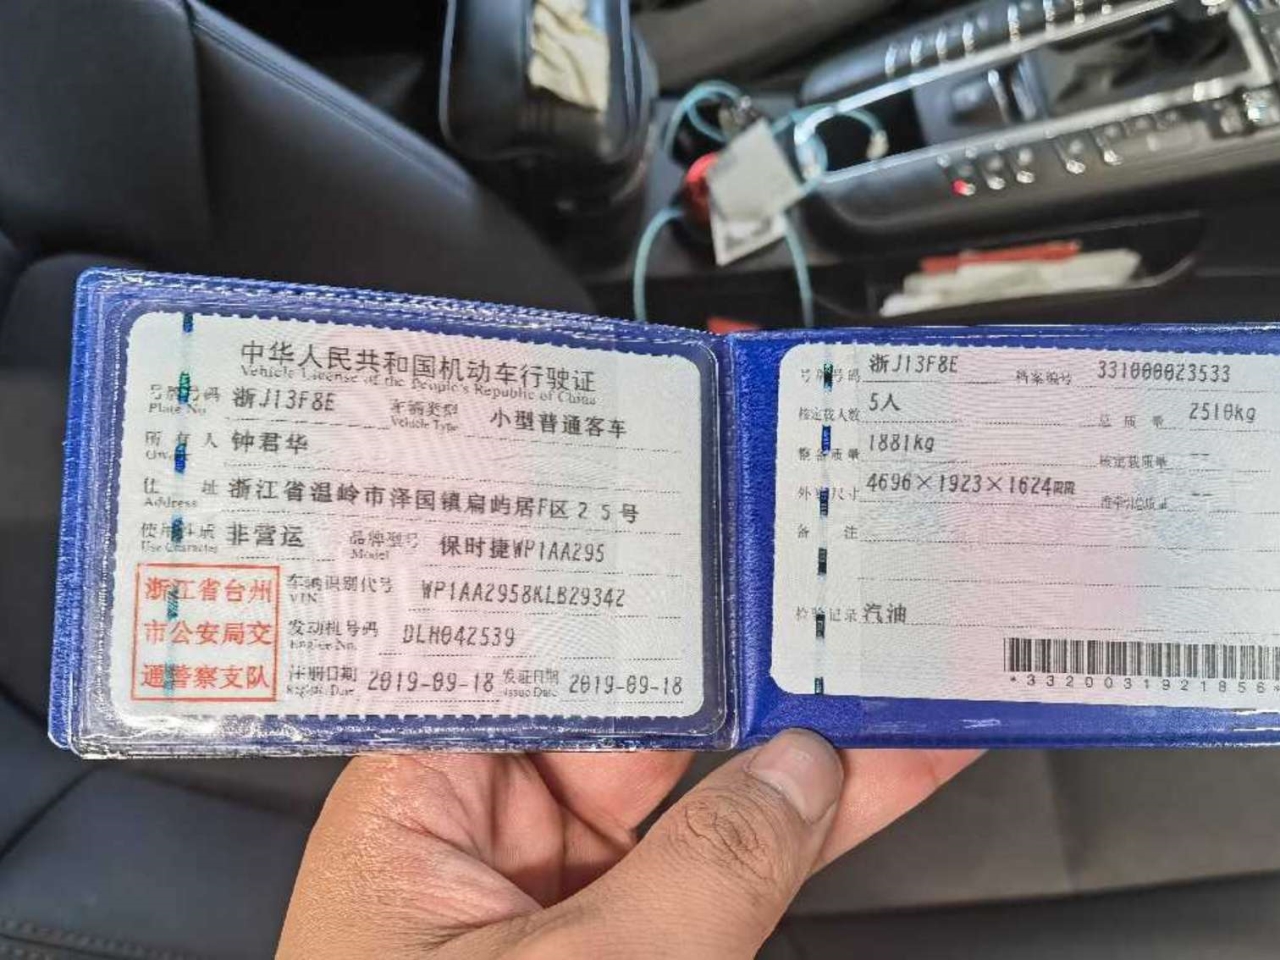 中华人民共和国机动车行驶证
Vehicle License of the People's Republic of China
号牌号码 浙J13F8E 车辆类型 小型普通客车
Plate No. Vehicle Type
所有人 钟君华
Owner
住址 浙江省温岭市泽国镇扁屿居F区25号
Address
使用性质 非营运 品牌型号 保时捷WP1AA295
Use Character Model
浙江省台州
市公安局交
通警察支队
车辆识别代号 WP1AA2958KLB29342
VIN
发动机号码 DLH042539
Engine No.
注册日期 2019-09-18 发证日期 2019-09-18
Register Date Issue Date
号牌号码 浙J13F8E 档案编号 331000023533
核定载人数 5人 总质量 2510kg
整备质量 1881kg 核定载质量 --
外廓尺寸 4696×1923×1624mm 准牵引总质量 --
备注
检验记录 汽油
*3320031921856